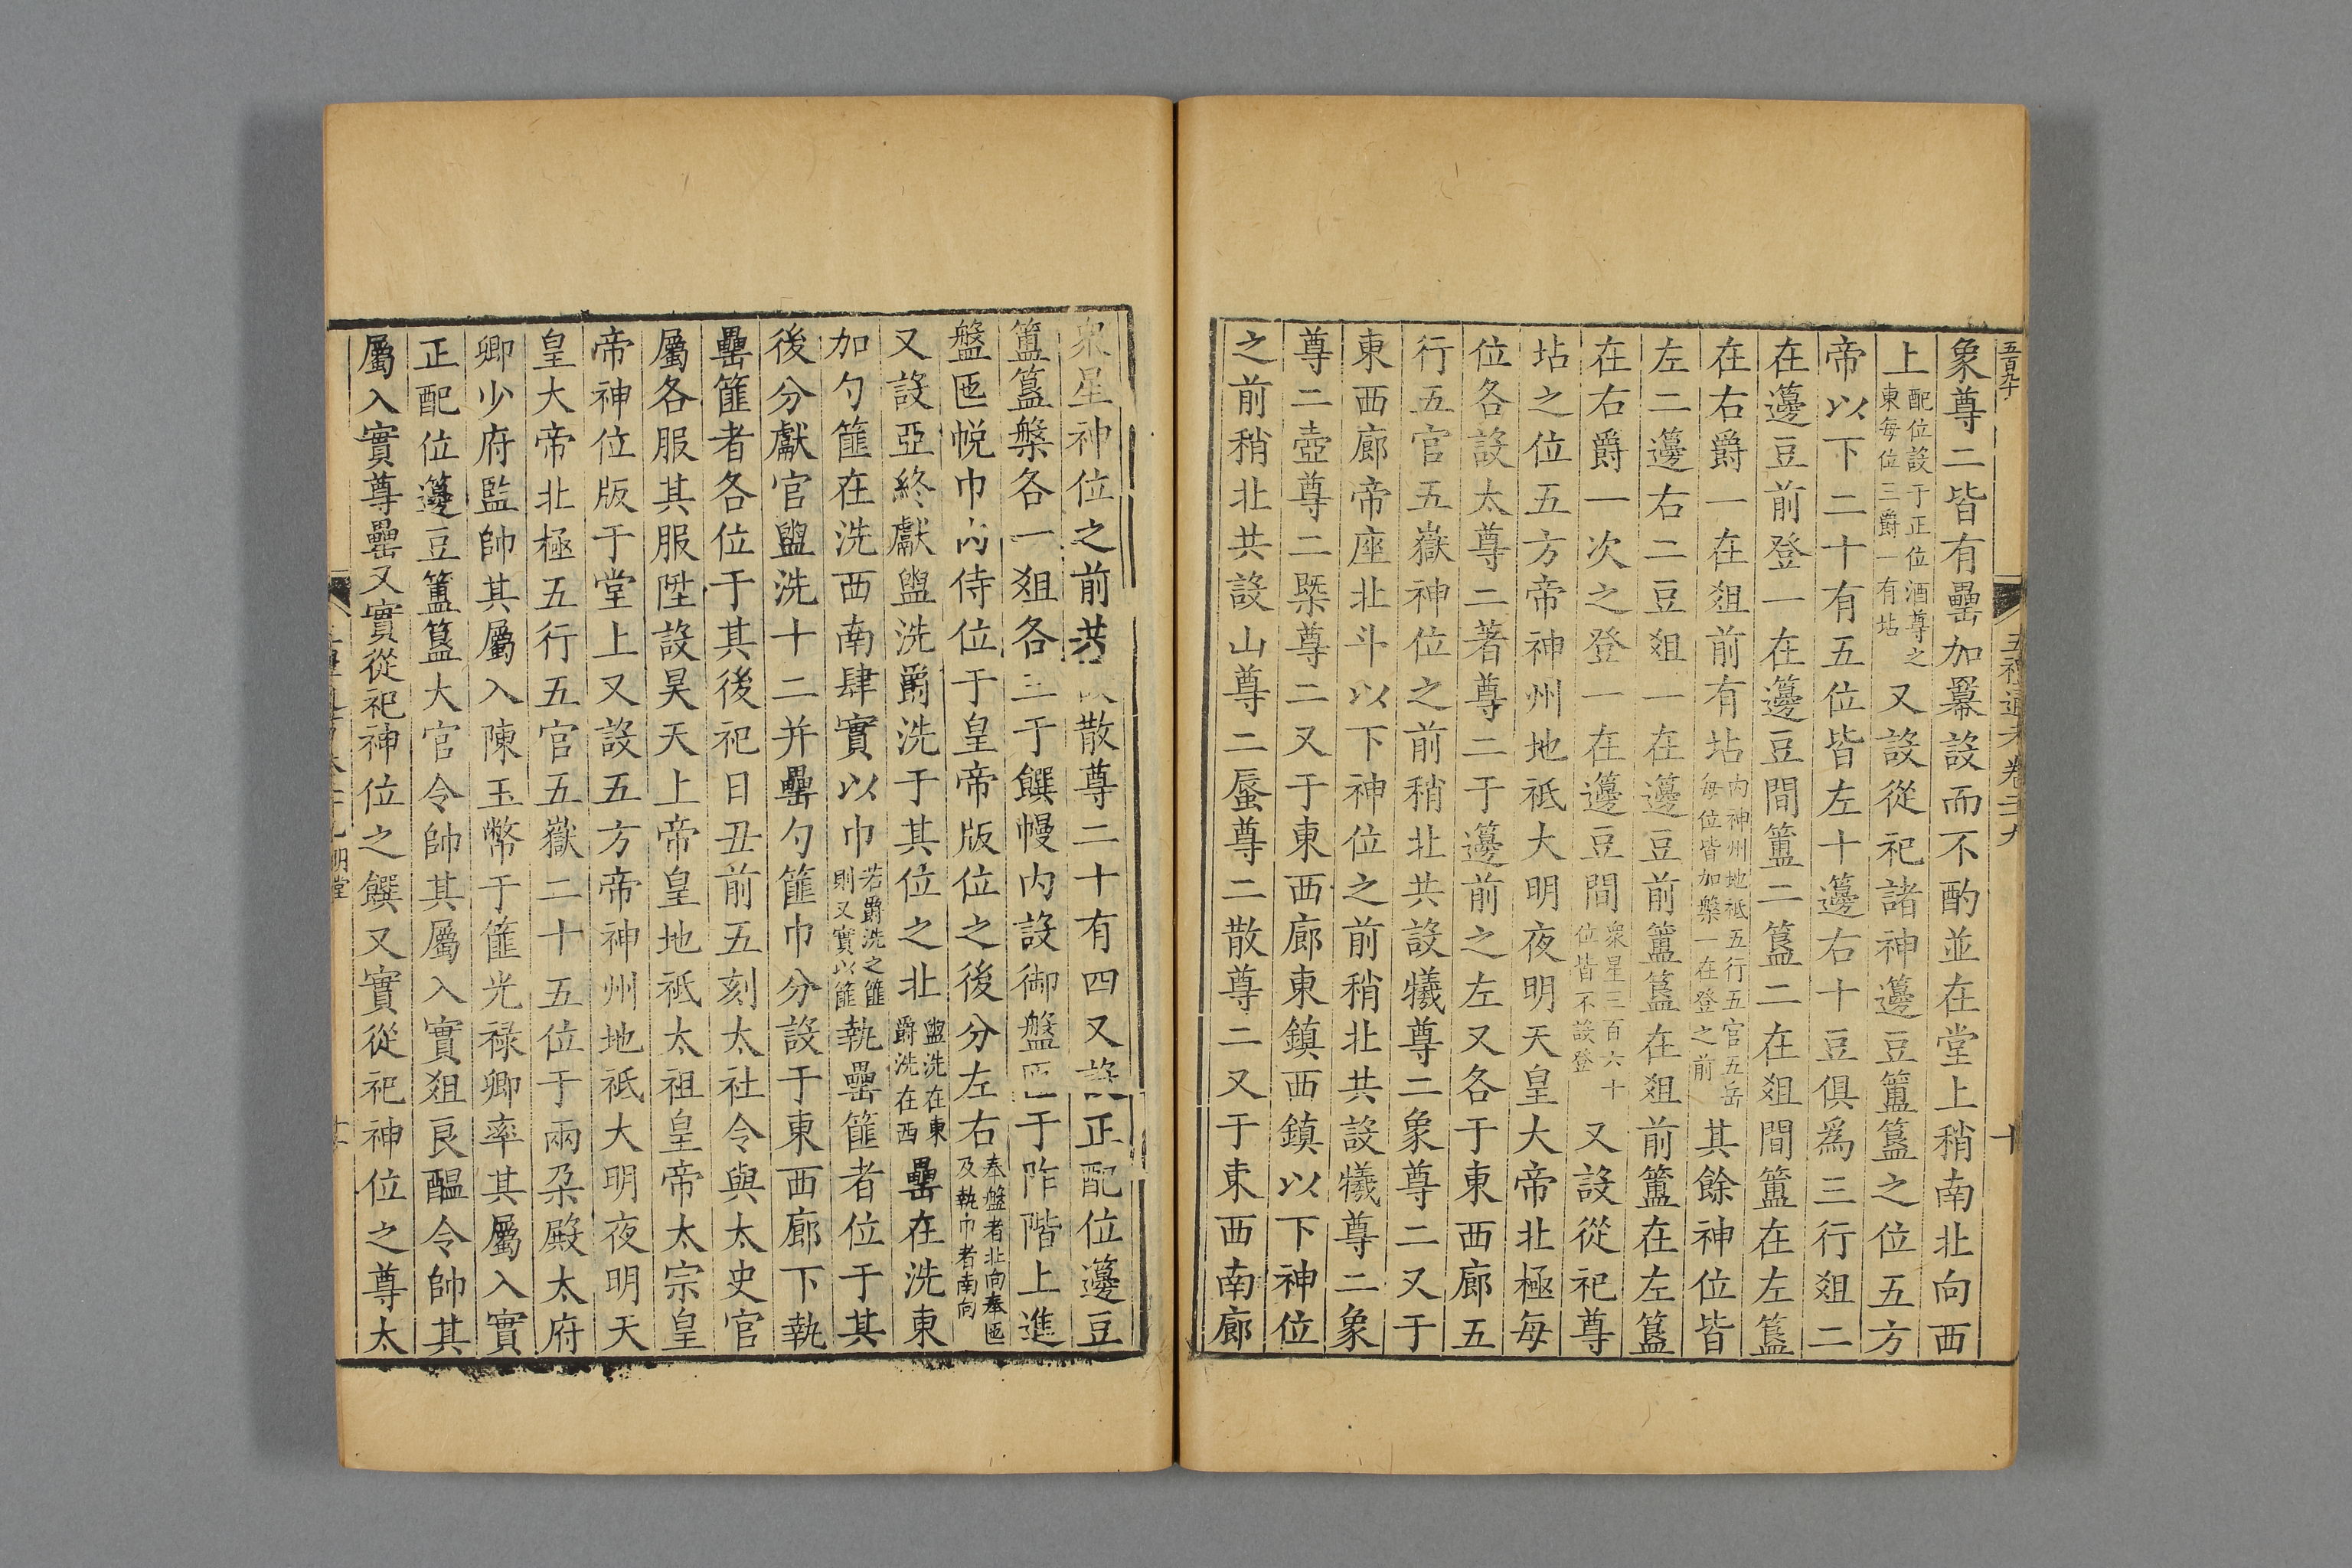 五禮通考卷二十九
十
象尊二皆有罍加羃設而不酌並在堂上稍南北向西
上配位設于正位酒尊之東每位三爵一有坫又設從祀諸神籩豆簠簋之位五方
帝以下二十有五位皆左十籩右十豆俱爲三行俎二
在籩豆前登一在籩豆間簠二簋二在俎間簠在左簋
在右爵一在俎前有坫内神州地祇五行五官五岳每位皆加槃一在登之前其餘神位皆
左二籩右二豆俎一在籩豆前簠簋在俎前簠在左簋
在右爵一次之登一在籩豆間衆星三百六十位皆不設登又設從祀尊
坫之位五方帝神州地祇大明夜明天皇大帝北極每
位各設太尊二著尊二于籩前之左又各于東西廊五
行五官五嶽神位之前稍北共設犧尊二象尊二又于
東西廊帝座北斗以下神位之前稍北共設犧尊二象
尊二壺尊二槩尊二又于東西廊東鎮西鎮以下神位
之前稍北共設山尊二蜃尊二散尊二又于東西南廊
衆星神位之前共散尊二十有四又設正配位籩豆
簠簋槃各一俎各三于饌幔内設御盤匜于阼階上進
盤匜帨巾内侍位于皇帝版位之後分左右奉盤者北向奉匜及執巾者南向
又設亞終獻盥洗爵洗于其位之北盥洗在東爵洗在西罍在洗東
加勺篚在洗西南肆實以巾若爵洗之篚則又實以篚執罍篚者位于其
後分獻官盥洗十二并罍勺篚巾分設于東西廊下執
罍篚者各位于其後祀日丑前五刻太社令與太史官
屬各服其服陞設昊天上帝皇地祇太祖皇帝太宗皇
帝神位版于堂上又設五方帝神州地祇大明夜明天
皇大帝北極五行五官五嶽二十五位于兩朶殿太府
卿少府監帥其屬入陳玉幣于篚光祿卿率其屬入實
正配位籩豆簠簋大官令帥其屬入實俎良醞令帥其
屬入實尊罍又實從祀神位之饌又實從祀神位之尊太
明堂